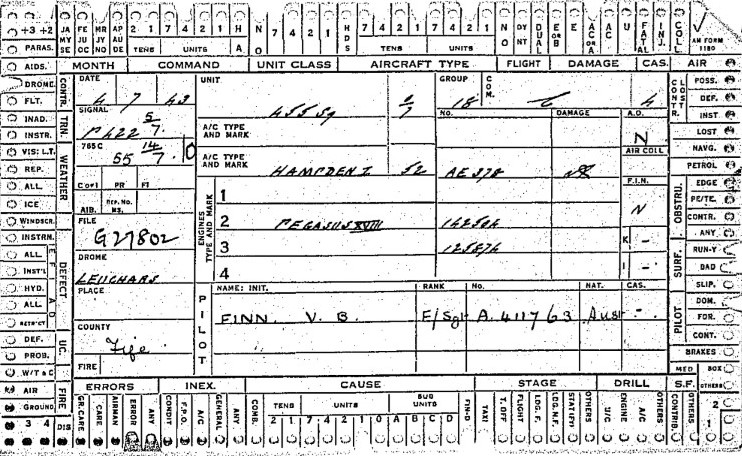 +3 +2 JA FE MR AP 2 1 7 4 2 1 H N 7 4 2 1 H 7 4 2 1 7 4 2 1 N DY DUAL E AC AC U FATAL INJ. COLL
PARAS. MY JU JY AU TENS UNITS A O D TENS UNITS O NT OR B OR A AM FORM
SE OC NO DE S 1180
AIDS. MONTH COMMAND UNIT CLASS AIRCRAFT TYPE FLIGHT DAMAGE CAS. AIR
DROME. CONTR. DATE UNIT GROUP COM. CONTR. LOST POSS.
FLT. 4 7 43 455 Sq 18 C 4 DEF.
INAD. TRN. SIGNAL 5/7. NO. DAMAGE A.D. INST
INSTR. P422 A/C TYPE AND MARK N LOST
VIS: L.T. WEATHER 765C 14/7. AIR COLL NAVG.
REP. 55 A/C TYPE AND MARK HAMPDEN I 52 AE 378 PETROL
ALL. PR FI F.I.N. OBSTRU. EDGE
ICE AIB. REP. NO. ENGINES TYPE AND MARK 1 N PE/TE.
WINDSCR. FILE 2 PEGASUS XVIII CONTR.
INSTRN. G27802 3 K - ANY
ALL DEFECT DROME 4 I - SURF. RUN-Y
INST'L LEUCHARS BAD
HYD. PLACE PILOT NAME: INIT. RANK No. NAT. CAS. SLIP.
ALL FINN. V. B. F/Sgt A. 411763 Aust - PILOT DOM.
RETR'CT COUNTY FOR.
DEF. UC. Fife CONT.
PROB. FIRE BRAKES
W/T & C MED BOX
AIR FIRE ERRORS INEX. CAUSE STAGE DRILL S.F. OTHERS
GROUND. GR. CARE CARE AIRMAN ERROR ANY CONDIT F.P.O. A/C GENERAL ANY COMB. TENS UNITS SUB UNITS FIN-D TAXI T. OFF FLIGHT LOG. F. LOG. R.F. STAT'ENT OTHERS U/C ENGINE A/C OTHERS CONTRIB. OTHERS 2
3 4 DIS 2 1 7 4 2 1 0 A B C D 1